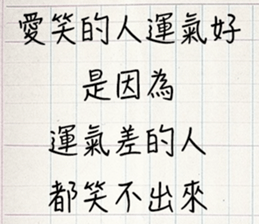 愛笑的人運氣好
是因為
運氣差的人
都笑不出來